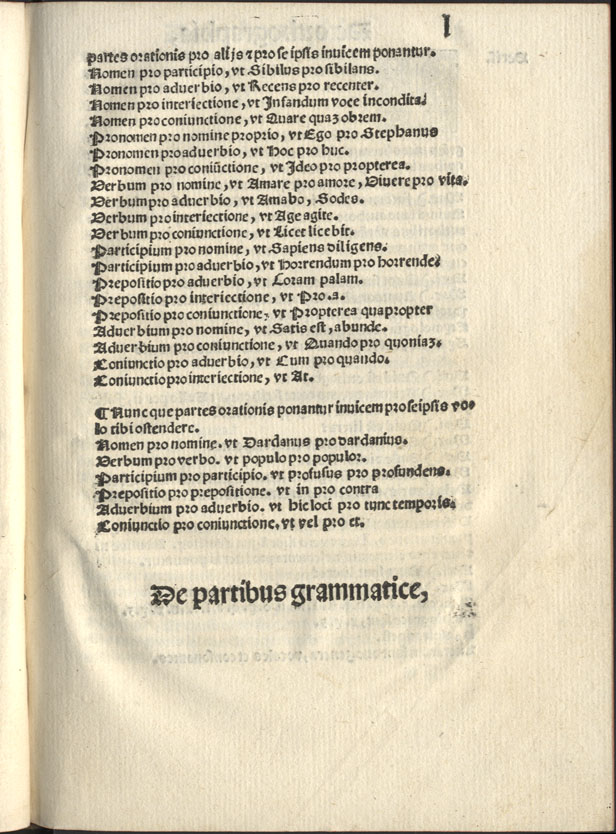 l
partes orationis pro alijs ⁊ pro se ipsis inuicem ponantur.
Nomen pro participio, vt Sibilus pro sibilans.
Nomen pro aduerbio, vt Recens pro recenter.
Nomen pro interiectione, vt Infandum voce incondita.
Nomen pro coniunctione, vt Quare quaꝫ obrem.
Pronomen pro nomine proprio, vt Ego pro Stephanus
Pronomen pro aduerbio, vt Hoc pro huc.
Pronomen pro coniūctione, vt Ideo pro propterea.
Verbum pro nomine, vt Amare pro amore, Viuere pro vita.
Verbum pro aduerbio, vt Amabo, Sodes.
Verbum pro interiectione, vt Age agite.
Verbum pro coniunctione, vt Licet licebit.
Participium pro nomine, vt Sapiens diligens.
Participium pro aduerbio, vt Horrendum pro horrende.
Prepositio pro aduerbio, vt Coram palam.
Prepositio pro interiectione, vt Pro.a.
Prepositio pro coniunctione, vt Propterea quapropter
Aduerbium pro nomine, vt Satis est, abunde.
Aduerbium pro coniunctione, vt Quando pro quoniaꝫ.
Coniunctio pro aduerbio, vt Cum pro quando.
Coniunctio pro interiectione, vt At.
¶ Nunc que partes orationis ponantur inuicem pro seipsis vo-
lo tibi ostendere.
Nomen pro nomine. vt Dardanus pro dardanius.
Verbum pro verbo. vt populo pro populor.
Participium pro participio. vt profusus pro profundens.
Prepositio pro prepositione. vt in pro contra
Aduerbium pro aduerbio. vt hic loci pro tunc temporis.
Coniunctio pro coniunctione. vt vel pro et.
De partibus grammatice,